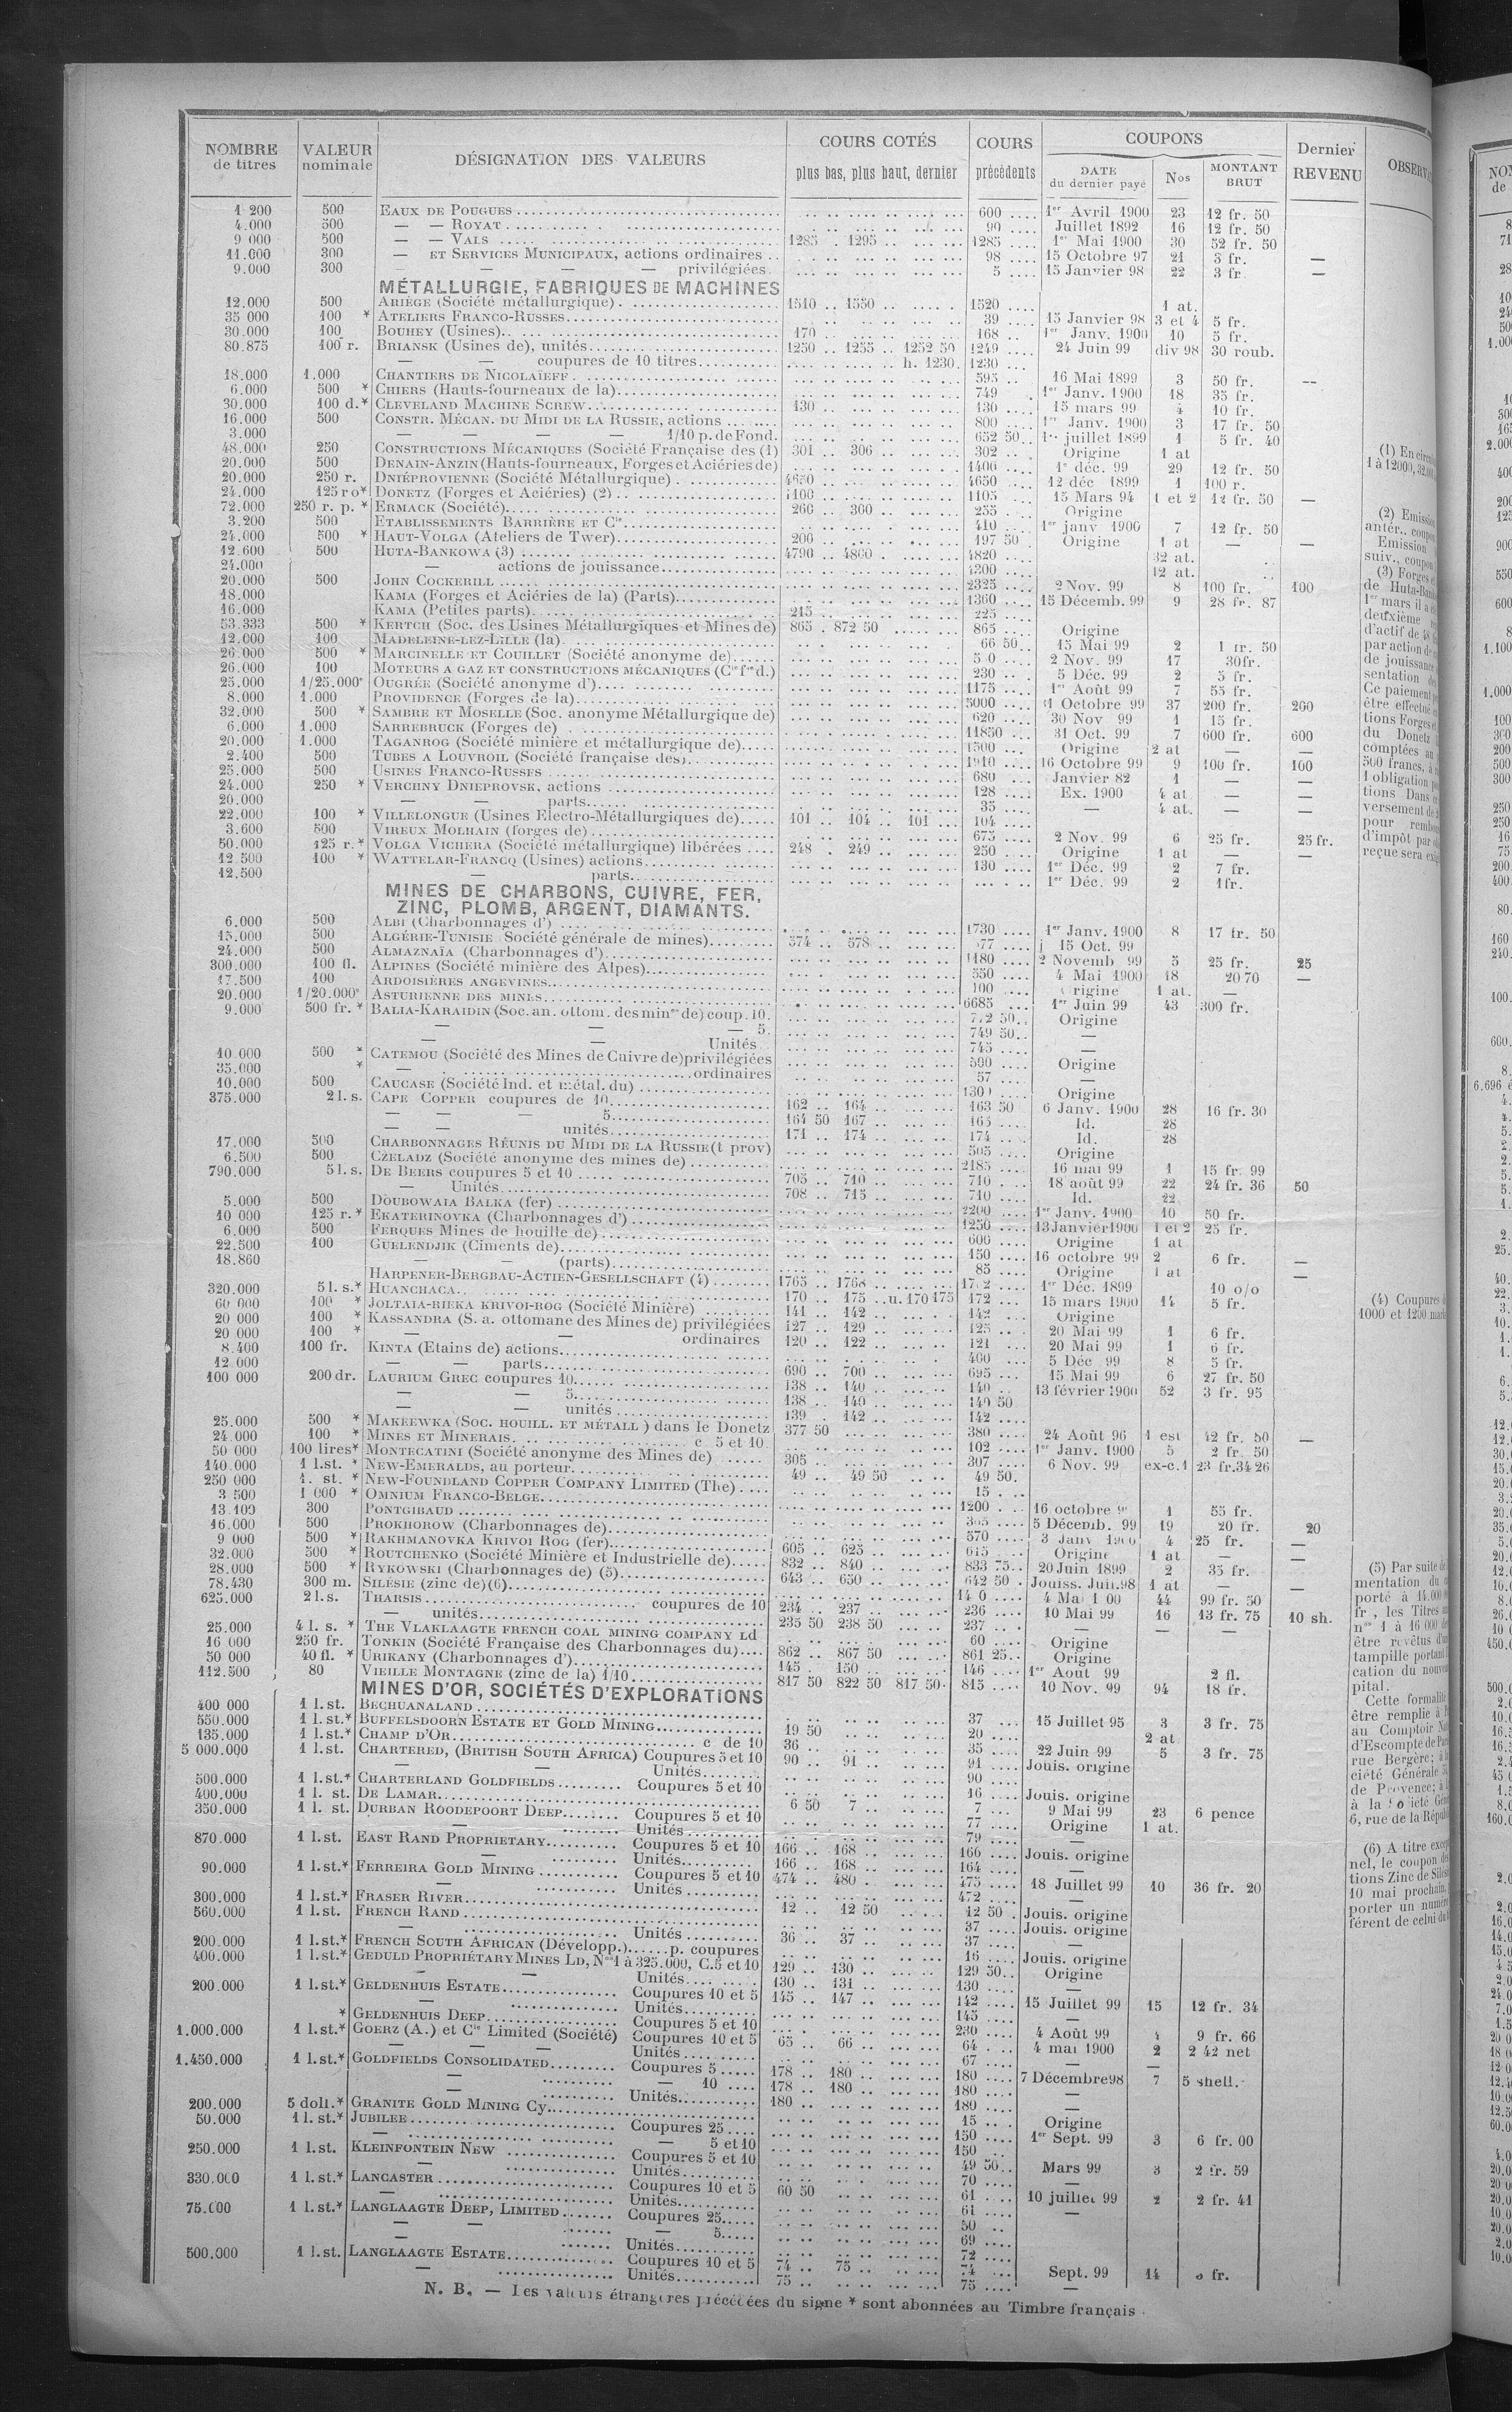 NOMBRE de titres | VALEUR nominale | DÉSIGNATION DES VALEURS | COURS COTÉS plus bas, plus haut, dernier | COURS précédents | COUPONS DATE du dernier payé | Nos | MONTANT BRUT | Dernier REVENU
1 200 | 500 | EAUX DE POUGUES | 600 | 1er Avril 1900 | 23 | 12 fr. 50
4.000 | 500 | — — ROYAT | 90 | Juillet 1892 | 16 | 12 fr. 50
9 000 | 500 | — — VALS | 1285 . 1295 | 1285 | 1er Mai 1900 | 30 | 52 fr. 50
11.000 | 300 | — ET SERVICES MUNICIPAUX, actions ordinaires | 98 | 15 Octobre 97 | 21 | 3 fr. | —
9.000 | 300 | — — — privilégiées | 5 | 15 Janvier 98 | 22 | 3 fr | —
MÉTALLURGIE, FABRIQUES DE MACHINES
12.000 | 500 | ARIÈGE (Société métallurgique) | 1510 .. 1550 | 1520 | 1 at.
35 000 | 100 * | ATELIERS FRANCO-RUSSES | 39 | 15 Janvier 98 | 3 et 4 | 5 fr.
30.000 | 100 | BOUHEY (Usines) | 170 | 168 | 1er Janv. 1900 | 10 | 5 fr.
80.875 | 100 r. | BRIANSK (Usines de), unités | 1250 .. 1255 .. 1252 50 | 1249 | 24 Juin 99 | div 98 | 30 roub.
— — coupures de 10 titres | h. 1230 | 1230
18.000 | 1.000 | CHANTIERS DE NICOLAÏEFF | 595 | 16 Mai 1899 | 3 | 50 fr. | --
6.000 | 500 * | CHIERS (Hauts-fourneaux de la) | 749 | 1er Janv. 1900 | 18 | 35 fr.
30.000 | 100 d.* | CLEVELAND MACHINE SCREW | 130 | 130 | 15 mars 99 | 4 | 10 fr.
16.000 | 500 | CONSTR. MÉCAN. DU MIDI DE LA RUSSIE, actions | 800 | 1er Janv. 1900 | 3 | 17 fr. 50
3.000 | — — — — 1/10 p. de Fond. | 652 50 | juillet 1899 | 1 | 5 fr. 40
48.000 | 250 | CONSTRUCTIONS MÉCANIQUES (Société Française des (1) | 301 .. 306 | 302 | Origine | 1 at
20.000 | 500 | DENAIN-ANZIN (Hauts-fourneaux, Forges et Aciéries de) | 1400 | 1er déc. 99 | 29 | 12 fr. 50
20.000 | 250 r. | DNIÉPROVIENNE (Société Métallurgique) | 4650 | 4650 | 12 déc 1899 | 1 | 100 r.
24.000 | 125 ro* | DONETZ (Forges et Aciéries) (2) | 1100 | 1105 | 15 Mars 94 | 1 et 2 | 12 fr. 50 | —
72.000 | 250 r. p. * | ERMACK (Société) | 260 .. 300 | 255 | Origine
3.200 | 500 | ETABLISSEMENTS BARRIÈRE ET Cie | 410 | 1er janv 1900 | 7 | 12 fr. 50
24.000 | 500 * | HAUT-VOLGA (Ateliers de Twer) | 200 | 197 50 | Origine | 1 at | — | —
12 600 | 500 | HUTA-BANKOWA (3) | 4790 .. 4800 | 4820 | 32 at.
24.000 | — actions de jouissance | 4300 | 12 at.
20.000 | 500 | JOHN COCKERILL | 2325 | 2 Nov. 99 | 8 | 100 fr. | 100
18.000 | KAMA (Forges et Aciéries de la) (Parts) | 1360 | 15 Décemb. 99 | 9 | 28 fr. 87
16.000 | KAMA (Petites parts) | 215 | 225
53.333 | 500 * | KERTCH (Soc. des Usines Métallurgiques et Mines de) | 865 . 872 50 | 865 | Origine
12.000 | 100 | MADELEINE-LEZ-LILLE (la) | 66 50 | 15 Mai 99 | 2 | 50
26.000 | 500 * | MARCINELLE ET COUILLET (Société anonyme de) | 2 Nov. 99 | 17 | 30 fr.
26.000 | 100 | MOTEURS A GAZ ET CONSTRUCTIONS MÉCANIQUES (Cie fse d.) | 230 | 5 Déc. 99 | 2 | 5 fr.
25.000 | 1/25.000e | OUGRÉE (Société anonyme d') | 1175 | 1er Août 99 | 7 | 55 fr.
8.000 | 1.000 | PROVIDENCE (Forges de la) | 5000 | 31 Octobre 99 | 37 | 200 fr. | 200
32.000 | 500 * | SAMBRE ET MOSELLE (Soc. anonyme Métallurgique de) | 620 | 30 Nov 99 | 1 | 15 fr.
6.000 | 1.000 | SARREBRUCK (Forges de) | 11850 | 31 Oct. 99 | 7 | 600 fr. | 600
20.000 | 1.000 | TAGANROG (Société minière et métallurgique de) | 1500 | Origine | 2 at | — | —
2.400 | 500 | TUBES A LOUVROIL (Société française des) | 16 Octobre 99 | 9 | 100 fr. | 100
25.000 | 500 | USINES FRANCO-RUSSES | 680 | Janvier 82 | 1 | — | —
24.000 | 250 * | VERCHNY DNIEPROVSK, actions | 128 | Ex. 1900 | 4 at | — | —
20.000 | — — parts | 35 | — | 4 at. | — | —
22.000 | 100 * | VILLELONGUE (Usines Electro-Métallurgiques de) | 101 .. 104 .. 101 | 104
3.600 | 500 | VIREUX MOLHAIN (forges de) | 675 | 2 Nov. 99 | 6 | 25 fr. | 25 fr.
50.000 | 125 r.* | VOLGA VICHERA (Société métallurgique) libérées | 248 . 249 | 250 | Origine | 1 at | — | —
12.500 | 100 * | WATTELAR-FRANCQ (Usines) actions | 130 | 1er Déc. 99 | 2 | 7 fr.
12.500 | — parts | 1er Déc. 99 | 2 | 1 fr.
MINES DE CHARBONS, CUIVRE, FER,
ZINC, PLOMB, ARGENT, DIAMANTS.
6.000 | 500 | ALBI (Charbonnages d') | 1730 | 1er Janv. 1900 | 8 | 17 fr. 50
15.000 | 500 | ALGÉRIE-TUNISIE Société générale de mines) | 574 .. 578 | 15 Oct. 99
24.000 | 500 | ALMAZNAÏA (Charbonnages d') | 1180 | 2 Novemb 99 | 5 | 25 fr. | 25
300.000 | 100 fl. | ALPINES (Société minière des Alpes) | 550 | 4 Mai 1900 | 18 | 20 70 | —
17.500 | 100 | ARDOISIÈRES ANGEVINES | 100 | Origine | 1 at. | —
20.000 | 1/20.000e | ASTURIENNE DES MINES | 6685 | 1er Juin 99 | 43 | 300 fr.
9.000 | 500 fr. * | BALIA-KARAIDIN (Soc. an. ottom. des mines de) coup. 10. | 50 | Origine
— — — 5. | 749 50 | —
— — Unités | 745 | —
10.000 | 500 * | CATEMOU (Société des Mines de Cuivre de) privilégiées | 500 | Origine
35.000 | * | — ordinaires | 57 | —
10.000 | 500 | CAUCASE (Société Ind. et métal. du) | Origine
375.000 | 2 l. s. | CAPE COPPER coupures de 10 | 162 .. 164 | 163 50 | 6 Janv. 1900 | 28 | 16 fr. 30
— — — 5 | 164 50 167 | 165 | Id. | 28
— — unités | 171 .. 174 | 174 | Id. | 28
17.000 | 500 | CHARBONNAGES RÉUNIS DU MIDI DE LA RUSSIE (t prov) | 505 | Origine
6.500 | 500 | CZELADZ (Société anonyme des mines de) | 2185 | 16 mai 99 | 1 | 15 fr. 99
790.000 | 5 l. s. | DE BEERS coupures 5 et 10 | 705 .. 710 | 710 | 18 août 99 | 22 | 24 fr. 36 | 50
— Unités | 708 .. 715 | 710 | Id. | 22
5.000 | 500 | DOUBOWAIA BALKA (fer) | 2200 | 1er Janv. 1900 | 10 | 50 fr.
10 000 | 125 r.* | EKATERINOVKA (Charbonnages d') | 1250 | 13 Janvier 1900 | 1 et 2 | 25 fr.
6.000 | 500 | FERQUES Mines de houille de) | 600 | Origine | 1 at
22.500 | 100 | GUELENDJIK (Ciments de) | 150 | 16 octobre 99 | 2 | 6 fr. | —
18.860 | — — (parts) | 85 | Origine | 1 at | —
HARPENER-BERGBAU-ACTIEN-GESELLSCHAFT (4) | 1765 .. 1768 | 1er Déc. 1899 | 10 o/o
320.000 | 5 l. s.* | HUANCHACA | 170 .. 175 .. u. 170 175 | 172 | 15 mars 1900 | 14 | 5 fr.
60 000 | 100 * | JOLTAIA-RIEKA KRIVOI-ROG (Société Minière) | 141 .. 142 | 142 | Origine
20 000 | 100 * | KASSANDRA (S. a. ottomane des Mines de) privilégiées | 127 .. 129 | 125 | 20 Mai 99 | 1 | 6 fr.
20 000 | 100 * | — — ordinaires | 120 .. 122 | 121 | 20 Mai 99 | 1 | 6 fr.
8.400 | 100 fr. | KINTA (Etains de) actions | 400 | 5 Déc 99 | 8 | 5 fr.
12.000 | — — parts | 690 .. 700 | 695 | 15 Mai 99 | 6 | 27 fr. 50
100 000 | 200 dr. | LAURIUM GREC coupures 10 | 138 .. 140 | 140 | 13 février 1900 | 52 | 3 fr. 95
— — 5 | 138 .. 140 | 140 50
— — unités | 139 . 142 | 142
25.000 | 500 * | MAKEEWKA (SOC. HOUILL. ET MÉTALL ) dans le Donetz | 377 50 | 380 | 24 Août 96 | 1 est | 12 fr. 50 | —
24.000 | 100 * | MINES ET MINERAIS. c 5 et 10 | 102 | 1er Janv. 1900 | 5 | 2 fr. 50
50 000 | 100 lires* | MONTECATINI (Société anonyme des Mines de) | 305 | 307 | 6 Nov. 99 | ex-c.1 | 23 fr.34 26
140.000 | 1 l.st. * | NEW-EMERALDS, au porteur | 49 .. 49 50 | 49 50
250 000 | 1. st. * | NEW-FOUNDLAND COPPER COMPANY LIMITED (The) | 15
3 500 | 1 000 * | OMNIUM FRANCO-BELGE | 1200 | 16 octobre | 1 | 55 fr.
13 109 | 300 | PONTGIBAUD | 5 Décemb. 99 | 19 | 20 fr. | 20
16.000 | 500 | PROKHOROW (Charbonnages de) | 570 | 3 Janv | 4 | 25 fr. | —
9 000 | 500 * | RAKHMANOVKA KRIVOI ROG (fer) | 605 .. 625 | 615 | Origine | 1 at | — | —
32.000 | 500 * | ROUTCHENKO (Société Minière et Industrielle de) | 832 .. 840 | 833 75 | 20 Juin 1899 | 2 | 35 fr.
28.000 | 500 * | RYKOWSKI (Charbonnages de) (5) | 643 .. 650 | 642 50 | Jouiss. Juil.98 | 1 at | — | —
78.430 | 300 m. | SILÉSIE (zinc de)(6) | 4 Mai | 44 | 99 fr. 50
625.000 | 2 l.s. | THARSIS coupures de 10 | 234 .. 237 | 236 | 10 Mai 99 | 16 | 13 fr. 75 | 10 sh.
— unités | 235 50 238 50 | 237 | — | — | —
25.000 | 4 l. s. * | THE VLAKLAAGTE FRENCH COAL MINING COMPANY LD | 60 | Origine
16 000 | 250 fr. | TONKIN (Société Française des Charbonnages du) | 862 .. 867 50 | 861 25 | Origine
50 000 | 40 fl. * | URIKANY (Charbonnages d') | 145 . 150 | 146 | 1er Août 99 | 2 fl.
112.500 | 80 | VIEILLE MONTAGNE (zinc de la) 1/10 | 817 50 822 50 817 50 | 815 | 10 Nov. 99 | 94 | 18 fr.
MINES D'OR, SOCIÉTÉS D'EXPLORATIONS
400 000 | 1 l.st. | BECHUANALAND | 37 | 15 Juillet 95 | 3 | 3 fr. 75
550.000 | 1 l.st.* | BUFFELSDOORN ESTATE ET GOLD MINING | 19 50 | 20 | 2 at
135.000 | 1 l.st.* | CHAMP D'OR c de 10 | 36 | 35 | 22 Juin 99 | 5 | 3 fr. 75
5 000.000 | 1 l.st. | CHARTERED, (BRITISH SOUTH AFRICA) Coupures 5 et 10 | 90 .. 91 | 91 | Jouis. origine
— — Unités | 90
500.000 | 1 l.st.* | CHARTERLAND GOLDFIELDS Coupures 5 et 10 | 16 | Jouis. origine
400.000 | 1 l. st. | DE LAMAR | 6 50 7 | 7 | 9 Mai 99 | 23 | 6 pence
350.000 | 1 l. st. | DURBAN ROODEPOORT DEEP Coupures 5 et 10 | 77 | Origine | 1 at.
— Unités | 79 | —
870.000 | 1 l.st. | EAST RAND PROPRIETARY Coupures 5 et 10 | 166 .. 168 | 166 | Jouis. origine
— Unités | 166 .. 168 | 164 | —
90.000 | 1 l.st.* | FERREIRA GOLD MINING Coupures 5 et 10 | 474 .. 480 | 475 | 18 Juillet 99 | 10 | 36 fr. 20
— Unités | 472 | —
300.000 | 1 l.st.* | FRASER RIVER | 12 .. 12 50 | 12 50 | Jouis. origine
560.000 | 1 l.st. | FRENCH RAND | 37 | Jouis. origine
— Unités | 36 .. 37 | 37 | —
200.000 | 1 l.st.* | FRENCH SOUTH AFRICAN (Développ.) p. coupures | 16 | Jouis. origine
400.000 | 1 l.st.* | GEDULD PROPRIÉTARY MINES LD, Nos 1 à 325.000, C.5 et 10 | 129 .. 130 | 129 50 | Origine
— Unités | 130 .. 131 | 130 | —
200.000 | 1 l.st.* | GELDENHUIS ESTATE Coupures 10 et 5 | 145 .. 147 | 142 | 15 Juillet 99 | 15 | 12 fr. 34
— Unités | 145 | —
* | GELDENHUIS DEEP Coupures 5 et 10 | 230 | 4 Août 99 | 4 | 9 fr. 66
1.000.000 | 1 l.st.* | GOERZ (A.) et Cie Limited (Société) Coupures 10 et 5 | 65 .. 66 | 64 | 4 mai 1900 | 2 | 2 42 net
— — — Unités | 67 | — | —
1.450.000 | 1 l.st.* | GOLDFIELDS CONSOLIDATED Coupures 5 | 178 .. 180 | 180 | 7 Décembre 98 | 7 | 5 shell.
— — 10 | 178 .. 180 | 180 | —
— Unités | 180 | 180 | —
200.000 | 5 doll.* | GRANITE GOLD MINING Cy | 15 | Origine
50.000 | 1 l. st.* | JUBILEE Coupures 25 | 150 | 1er Sept. 99 | 3 | 6 fr. 00
— — 5 et 10 | 150
250.000 | 1 l.st. | KLEINFONTEIN NEW Coupures 5 et 10 | 49 50 | Mars 99 | 3 | 2 fr. 59
— Unités | 70 | —
330.000 | 1 l.st.* | LANCASTER Coupures 10 et 5 | 60 50 | 61 | 10 juillet 99 | 2 | 2 fr. 41
— Unités | 61 | —
75.000 | 1 l.st.* | LANGLAAGTE DEEP, LIMITED Coupures 25 | 50
— — — 5 | 69
— Unités | 72
500.000 | 1 l.st. | LANGLAAGTE ESTATE Coupures 10 et 5 | 74 .. 75 | 74 | Sept. 99 | 14 | fr.
— Unités | 75 | 75 | —
N. B. — Les valeurs étrangères précédées du signe * sont abonnées au Timbre français
(1) En
1 à 12000,
(2) Emission
antér., coupon
Emission
suiv., coupon
(3) Forges
de Huta-
1er mars il a
deuxième
d'actif de
par action
de jouissance
sentation
Ce paiement
être effectué
tions Forges
du Donetz
comptées
500 francs,
1 obligation
tions Dans
versement
pour
d'impôt par
reçue sera
(4) Coupures
1000 et 1200
(5) Par suite
mentation du
porté à
fr , les Titres
nos 1 à 16 000
être revêtus
tampille portant
cation du nouveau
pital.
Cette formalité
être remplie à
au Comptoir
d'Escompte de
rue Bergère;
ciété Générale
de Provence;
à la
6, rue de la
(6) A titre
nel, le coupon
tions Zinc de
10 mai prochain
porter un numéro
férent de celui du